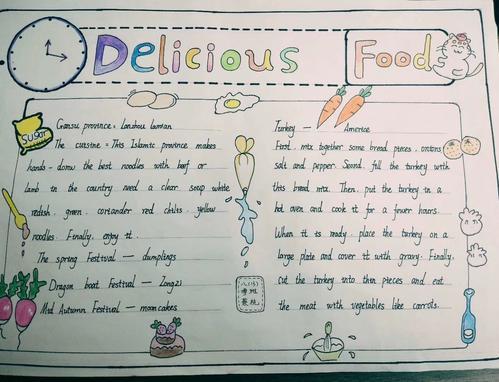 Delicious Food
SUGAR
Gansu province: Lanzhou lamian
The cuisine: This Islamic province makes
hands-down the best noodles with beef or
lamb in the country need a clear soup white
redish. green. coriander red chilis. yellow
noodles. Finally. enjoy it.
The spring Festival — dumplings
Dragon boat Festival — Zongzi
Mid Autumn Festival — mooncakes
Turkey — America
First. mix together some bread pieces. onions
salt and pepper. Second. fill the turkey with
this bread mix. Then. put the turkey in a
hot oven and cook it for a fewer hours.
When it is ready. place the turkey on a
large plate and cover it with gravy. Finally.
cut the turkey into thin pieces and eat
the meat with vegetables like carrots.